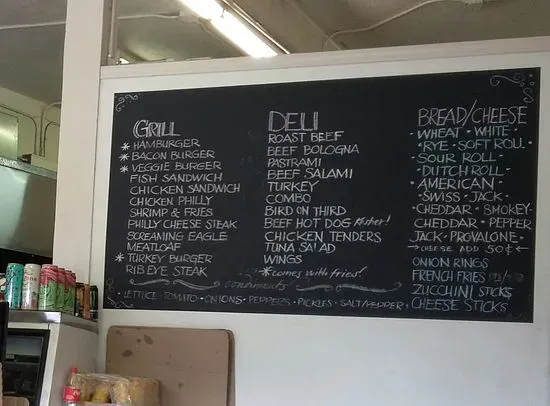 GRILL
* HAMBURGER
* BACON BURGER
* VEGGIE BURGER
FISH SANDWICH
CHICKEN SANDWICH
CHICKEN PHILLY
SHRIMP & FRIES
PHILLY CHEESE STEAK
SCREAMING EAGLE
MEATLOAF
* TURKEY BURGER
RIB EYE STEAK
DELI
ROAST BEEF
BEEF BOLOGNA
PASTRAMI
BEEF SALAMI
TURKEY
COMBO
BIRD ON THIRD
BEEF HOT DOG Kosher!
CHICKEN TENDERS
TUNA SALAD
WINGS
* comes with fries!
BREAD/CHEESE
WHEAT · WHITE ·
· RYE · SOFT ROLL ·
· SOUR ROLL ·
· DUTCH ROLL ·
· AMERICAN ·
· SWISS · JACK ·
CHEDDAR · SMOKEY
CHEDDAR · PEPPER
JACK · PROVALONE ·
CHEESE ADD 50¢
ONION RINGS
FRENCH FRIES
ZUCCHINI STICKS
CHEESE STICKS
condiments!
· LETTICE · TOMATO · ONIONS · PEPPERS · PICKLES · SALT/PEPPER ·